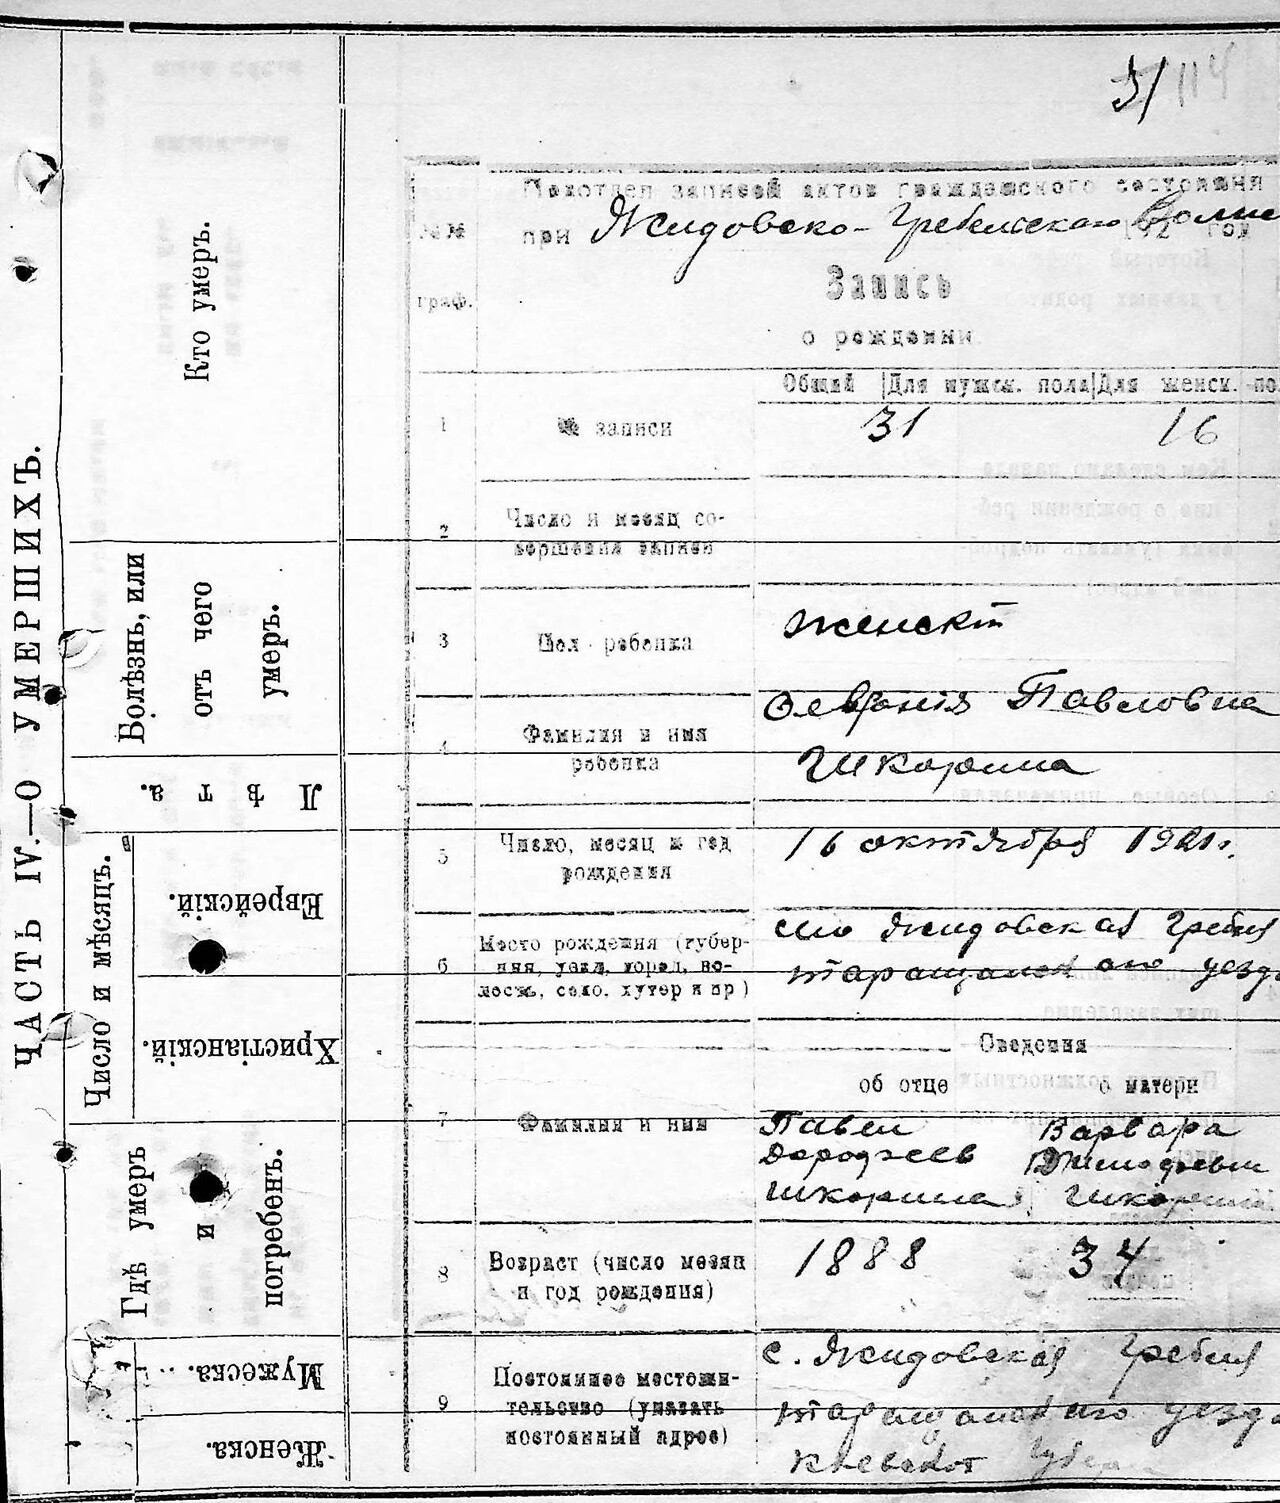 51 114
ЧАСТЬ IV.—О УМЕРШИХЪ.
Кто умеръ.
Болѣзнь, или
отъ чего
умеръ.
Лѣта.
Число и мѣсяцъ.
Еврейскій.
Христіанскій.
Гдѣ умеръ
и
погребенъ.
Мужеска.
Женска.
Подотдел записей актов гражданского состояния
№№ при Жидовско-Гребельской Волис
192 год
граф.
Запись
о рождении
Общий Для мужск. пола Для женск. пол
1 № записи 31 16
2 Число и месяц со-
вершения записи
3 Пол ребенка женский
4 Фамилия и имя Павловна
ребенка Шкорина
5 Число, месяц и год 16 октября 1921 г.
рождения
6 Место рождения (губер- село Жидовская Гребля
ния, уезд, город, во- таращанского уезда
лость, село, хутор и пр)
Сведения
об отце о матери
7 Фамилия и имя Павел Варвара
Шкорина
8 Возраст (число месяц 1888 34
и год рождения)
9 Постоянное местожи- с. Жидовская Гребля
тельство (указать таращанского уезда
постоянный адрес) Киевской Губерн